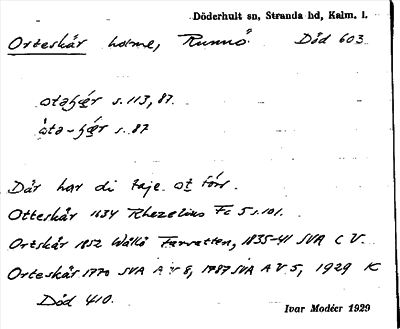 Döderhult sn, Stranda hd, Kalm. l.
Orteskär holme, Runnö. Död 603.
s. 113, 87.
s. 87
Där har di taje
Otteskär 1634 Rhezelius Fc 5 s. 101.
Ortskär 1852 Wållö Farvatten, 1835-41 SVA C V.
Orteskär 1770 SVA A V 8, 1787 SVA A V 5, 1929 K
Död 410.
Ivar Modéer 1929